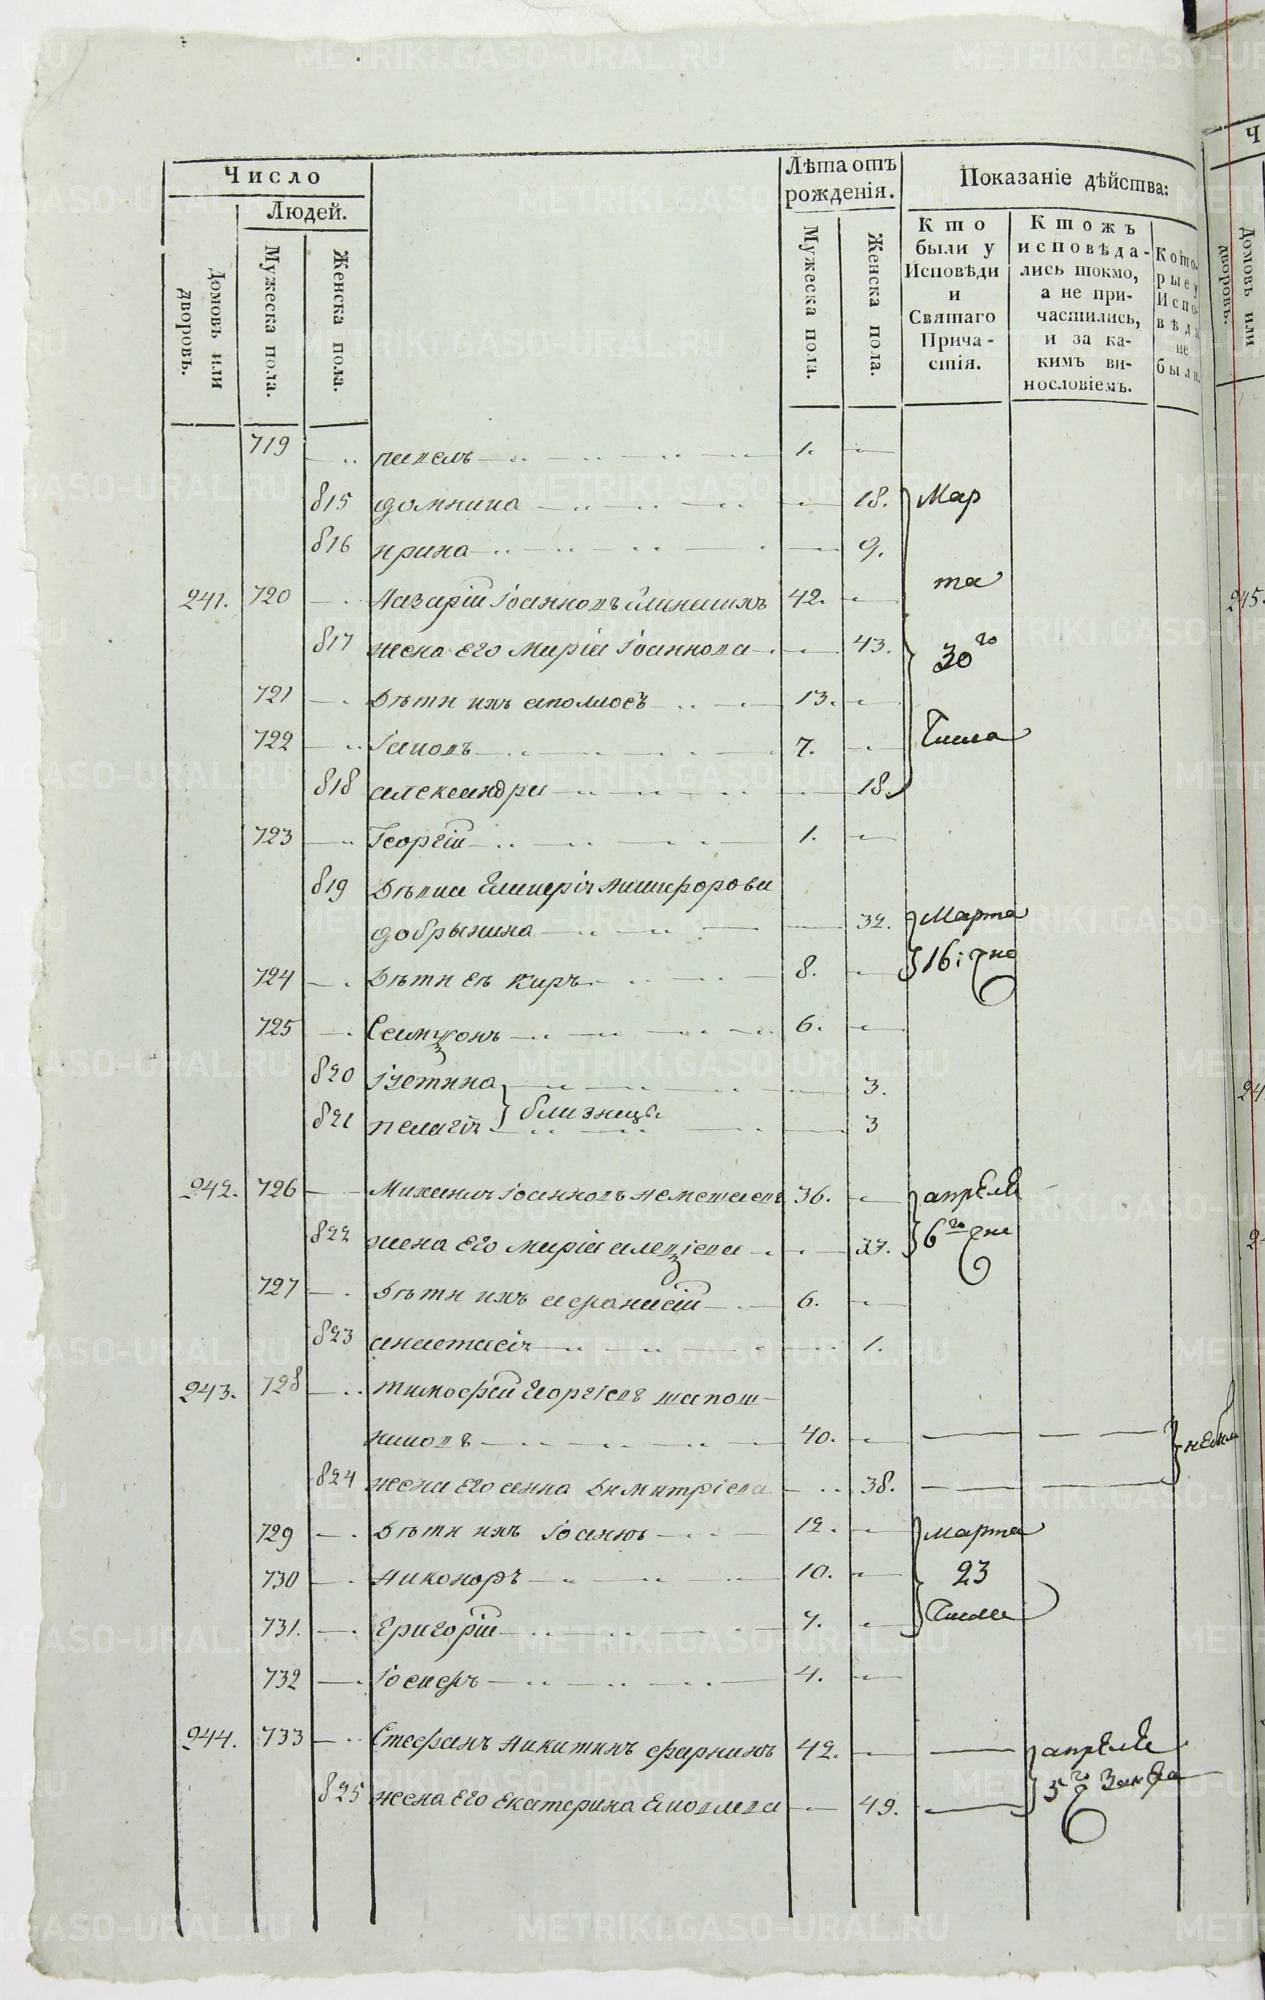 Число
Людей.
Домовъ или дворовъ.
Мужеска пола.
Женска пола.
Лѣта отъ рожденія.
Мужеска пола.
Женска пола.
Показаніе дѣйства:
Кто были у Исповѣди и Святаго Причастія.
Ктожъ исповѣдались токмо, а не причастились, и за какимъ винословіемъ.
Которые у Исповѣди не были.
719 павелъ 1.
815 домника 18. Мар
816 ирина 9.
241. 720 Лазарій Іоанновъ 42. та
817 жена Его Марія Іоаннова 43. 30го
721 Дѣти ихъ аполлосъ 13.
722 Іаковъ 7. Числа
818 александра 18.
723 Георгій 1.
819 Дѣвка Никифорова
добрынина 32. Марта
724 Дѣти Ея Киръ 8. 16: дне
725 Сампсонъ 6.
820 Іустина 3.
821 пелагія близнецы 3
242. 726 Михаилъ Іоанновъ 36. апрѣля
822 жена Его Марія 37. 6го дне
727 Дѣти ихъ афанасій 6.
823 анастасія 1.
243. 728 тимофей Георгіевъ шапош-
никовъ 40. небыли
824 жена Его анна Димитріева 38.
729 Дѣти ихъ Іоаннъ 12. марта
730 Никоноръ 10. 23
731. Григорій 7. Числа
732 Іосифъ 4.
244. 733 Стефанъ Никитинъ 42. апрѣля
825 жена Его Екатерина 49. 5го
METRIKI.GASO-URAL.RU